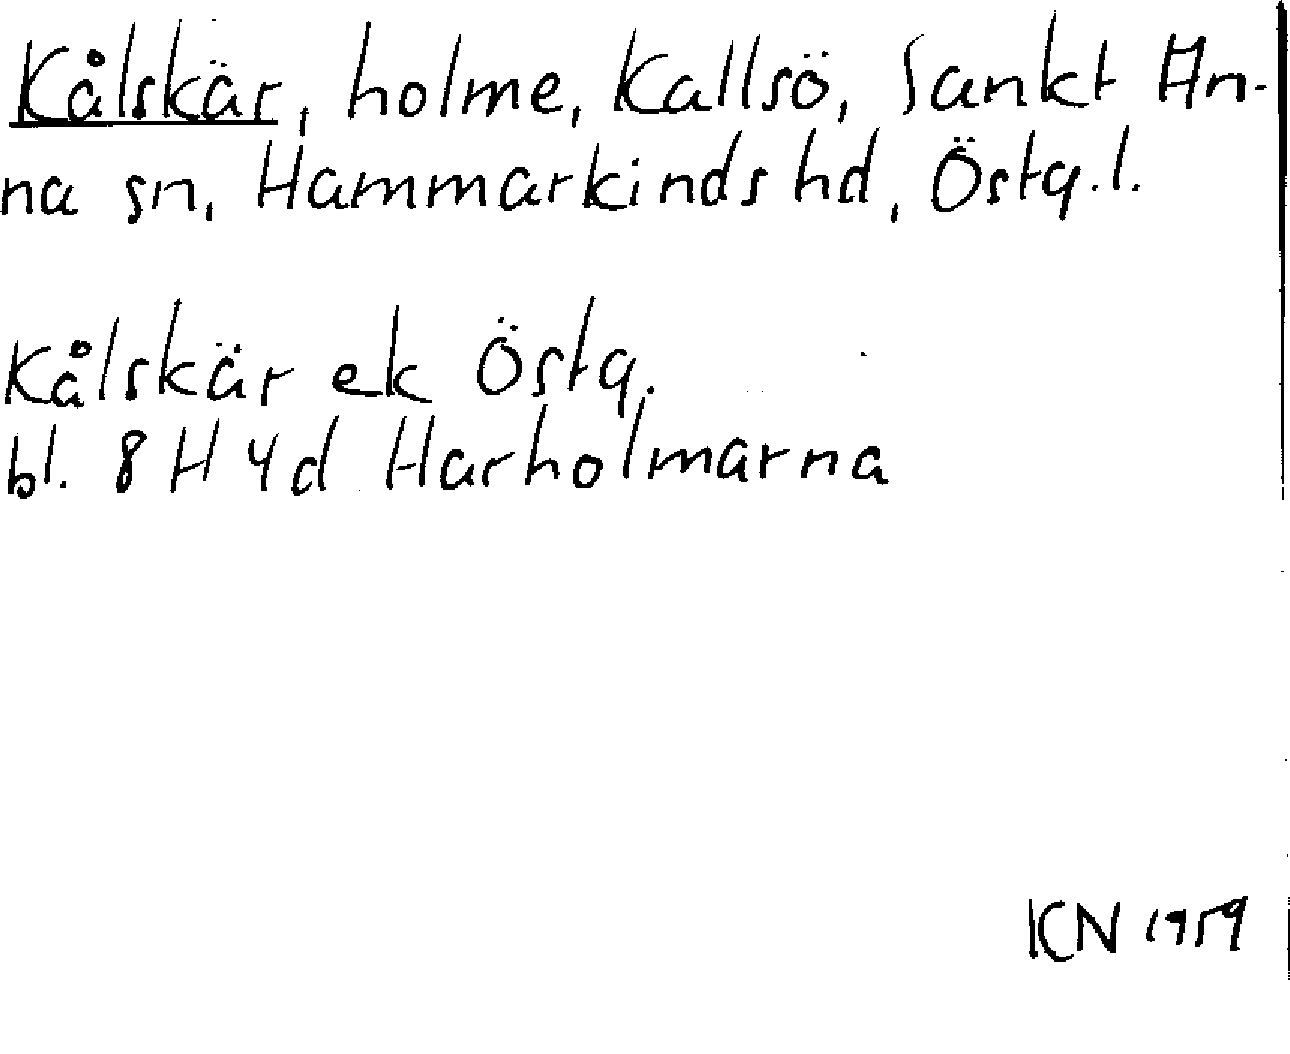 Kålskär, holme, Kallsö, Sankt An-
na sn, Hammarkinds hd, Östg.l.
Kålskär ek Östg.
bl. 8 H 4d Harholmarna
KN 1959